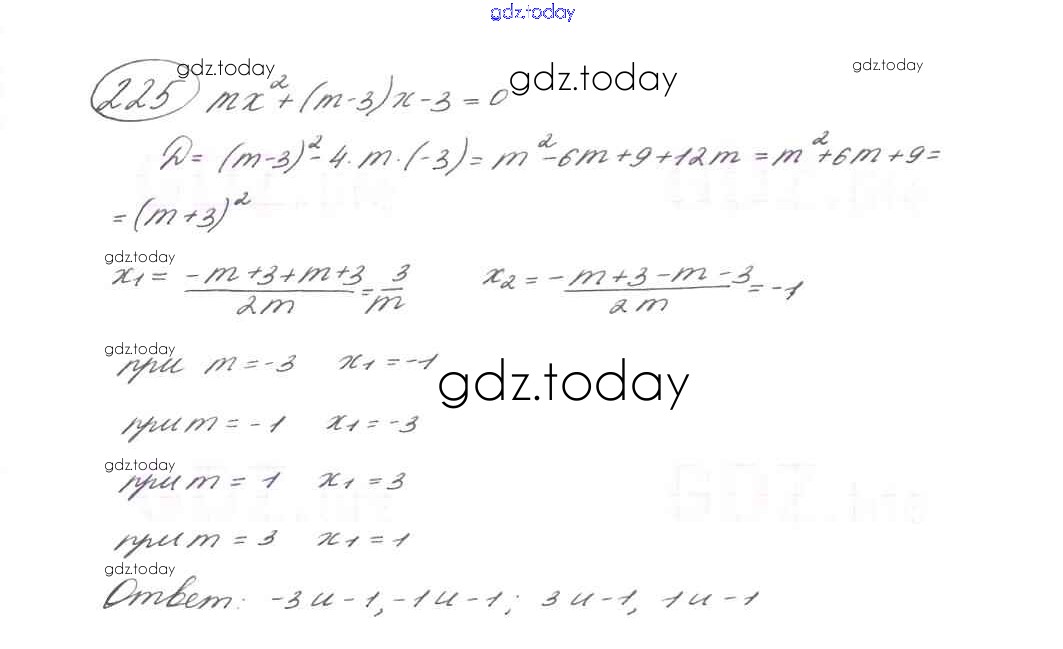 gdz.today
gdz.today gdz.today gdz.today
225 mx²+(m-3)x-3=0
D=(m-3)²-4·m·(-3)=m²-6m+9+12m=m²+6m+9=
=(m+3)²
gdz.today
x₁=(-m+3+m+3)/2m=3/m x₂=(-m+3-m-3)/2m=-1
gdz.today
при m=-3 x₁=-1
gdz.today
при m=-1 x₁=-3
gdz.today
при m=1 x₁=3
при m=3 x₁=1
gdz.today
Ответ: -3 и -1, -1 и -1; 3 и -1, 1 и -1